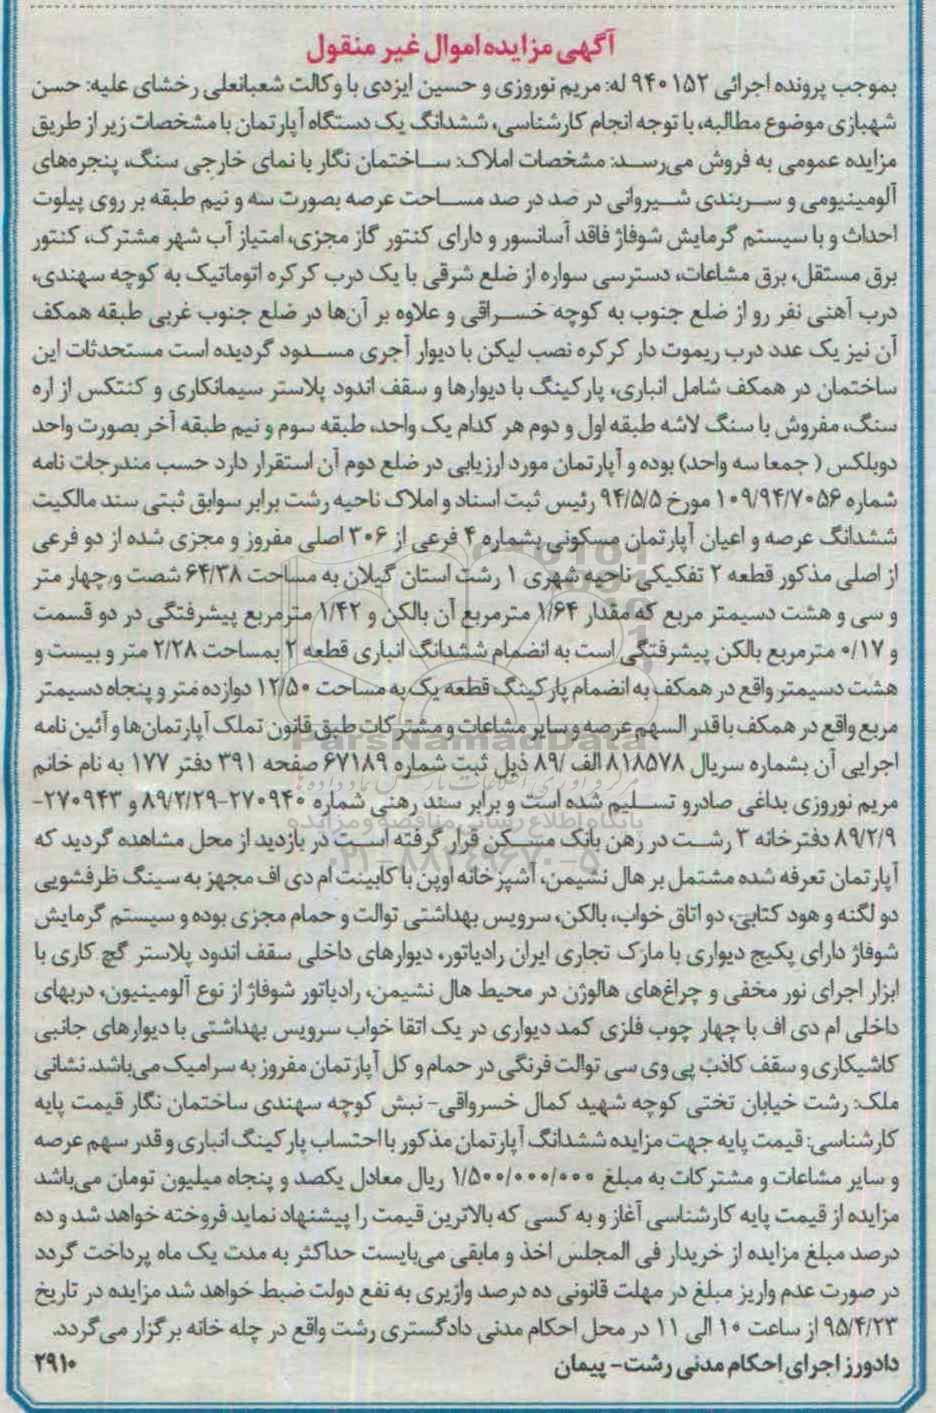 آگهی مزایده اموال غیر منقول
بموجب پرونده اجرائی ۹۴۰۱۵۲ له: مریم نوروزی و حسین ایزدی با وکالت شعبانعلی رخشای علیه: حسن
شهبازی موضوع مطالبه، با توجه انجام کارشناسی، ششدانگ یک دستگاه آپارتمان با مشخصات زیر از طریق
مزایده عمومی به فروش می‌رسد: مشخصات املاک: ساختمان نگار با نمای خارجی سنگ، پنجره‌های
آلومینیومی و سربندی شیروانی در صد در صد مساحت عرصه بصورت سه و نیم طبقه بر روی پیلوت
احداث و با سیستم گرمایش شوفاژ فاقد آسانسور و دارای کنتور گاز مجزی، امتیاز آب شهر مشترک، کنتور
برق مستقل، برق مشاعات، دسترسی سواره از ضلع شرقی با یک درب کرکره اتوماتیک به کوچه سهندی،
درب آهنی نفر رو از ضلع جنوب به کوچه خسراقی و علاوه بر آن‌ها در ضلع جنوب غربی طبقه همکف
آن نیز یک عدد درب ریموت دار کرکره نصب لیکن با دیوار آجری مسدود گردیده است مستحدثات این
ساختمان در همکف شامل انباری، پارکینگ با دیوارها و سقف اندود پلاستر سیمانکاری و کنتکس از اره
سنگ، مفروش با سنگ لاشه طبقه اول و دوم هر کدام یک واحد، طبقه سوم و نیم طبقه آخر بصورت واحد
دوبلکس ( جمعا سه واحد) بوده و آپارتمان مورد ارزیابی در ضلع دوم آن استقرار دارد حسب مندرجات نامه
شماره ۱۰۹/۹۴/۷۰۵۶ مورخ ۹۴/۵/۵ رئیس ثبت اسناد و املاک ناحیه رشت برابر سوابق ثبتی سند مالکیت
ششدانگ عرصه و اعیان آپارتمان مسکونی بشماره ۴ فرعی از ۳۰۶ اصلی مفروز و مجزی شده از دو فرعی
از اصلی مذکور قطعه ۲ تفکیکی ناحیه شهری ۱ رشت استان گیلان به مساحت ۶۴/۳۸ شصت و چهار متر
و سی و هشت دسیمتر مربع که مقدار ۱/۶۴ مترمربع آن بالکن و ۱/۴۲ مترمربع پیشرفتگی در دو قسمت
و ۰/۱۷ مترمربع بالکن پیشرفتگی است به انضمام ششدانگ انباری قطعه ۲ بمساحت ۲/۲۸ متر و بیست و
هشت دسیمتر واقع در همکف به انضمام پارکینگ قطعه یک به مساحت ۱۲/۵۰ دوازده متر و پنجاه دسیمتر
مربع واقع در همکف با قدر السهم عرصه و سایر مشاعات و مشترکات طبق قانون تملک آپارتمان‌ها و آئین نامه
اجرایی آن بشماره سریال ۸۱۸۵۷۸ الف /۸۹ ذیل ثبت شماره ۶۷۱۸۹ صفحه ۳۹۱ دفتر ۱۷۷ به نام خانم
مریم نوروزی بداغی صادرو تسلیم شده است و برابر سند رهنی شماره ۲۷۰۹۴۰-۸۹/۲/۲۹ و ۲۷۰۹۴۳-
۸۹/۲/۹ دفترخانه ۳ رشت در رهن بانک مسکن قرار گرفته است در بازدید از محل مشاهده گردید که
آپارتمان تعرفه شده مشتمل بر هال نشیمن، آشپزخانه اوپن با کابینت ام دی اف مجهز به سینگ ظرفشویی
دو لگنه و هود کتابی، دو اتاق خواب، بالکن، سرویس بهداشتی توالت و حمام مجزی بوده و سیستم گرمایش
شوفاژ دارای پکیج دیواری با مارک تجاری ایران رادیاتور، دیوارهای داخلی سقف اندود پلاستر گچ کاری با
ابزار اجرای نور مخفی و چراغ‌های هالوژن در محیط هال نشیمن، رادیاتور شوفاژ از نوع آلومینیون، دربهای
داخلی ام دی اف با چهار چوب فلزی کمد دیواری در یک اتقا خواب سرویس بهداشتی با دیوارهای جانبی
کاشیکاری و سقف کاذب پی وی سی توالت فرنگی در حمام و کل آپارتمان مفروز به سرامیک می‌باشد. نشانی
ملک: رشت خیابان تختی کوچه شهید کمال خسرواقی- نبش کوچه سهندی ساختمان نگار قیمت پایه
کارشناسی: قیمت پایه جهت مزایده ششدانگ آپارتمان مذکور با احتساب پارکینگ انباری و قدر سهم عرصه
و سایر مشاعات و مشترکات به مبلغ ۱/۵۰۰/۰۰۰/۰۰۰ ریال معادل یکصد و پنجاه میلیون تومان می‌باشد
مزایده از قیمت پایه کارشناسی آغاز و به کسی که بالاترین قیمت را پیشنهاد نماید فروخته خواهد شد و ده
درصد مبلغ مزایده از خریدار فی المجلس اخذ و مابقی می‌بایست حداکثر به مدت یک ماه پرداخت گردد
در صورت عدم واریز مبلغ در مهلت قانونی ده درصد واریزی به نفع دولت ضبط خواهد شد مزایده در تاریخ
۹۵/۴/۲۳ از ساعت ۱۰ الی ۱۱ در محل احکام مدنی دادگستری رشت واقع در چله خانه برگزار می‌گردد.
دادورز اجرای احکام مدنی رشت- پیمان
۲۹۱۰
ParsNamadData
پایگاه اطلاع رسانی مناقصه و مزایده
۰۲۱-۸۸۳۴۹۶۷۰-۵